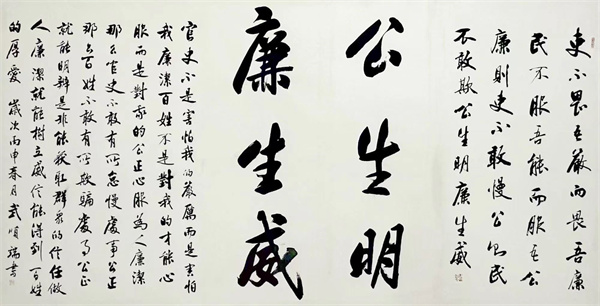 吏不畏吾嚴而畏吾廉
民不服吾能而服吾公
廉則吏不敢慢公則民
不敢欺公生明廉生威
公生明
廉生威
官吏不是害怕我的嚴厲而是害怕
我廉潔百姓不是對我的才能心
服而是對我的公正心服為人廉潔
那么官吏不敢有所怠慢處事公正
那么百姓不敢有所欺騙處事公正
就能明辨是非能獲取群眾的信任做
人廉潔就能樹立威信能得到百姓
的厚愛 歲次丙申春月武順瑞書